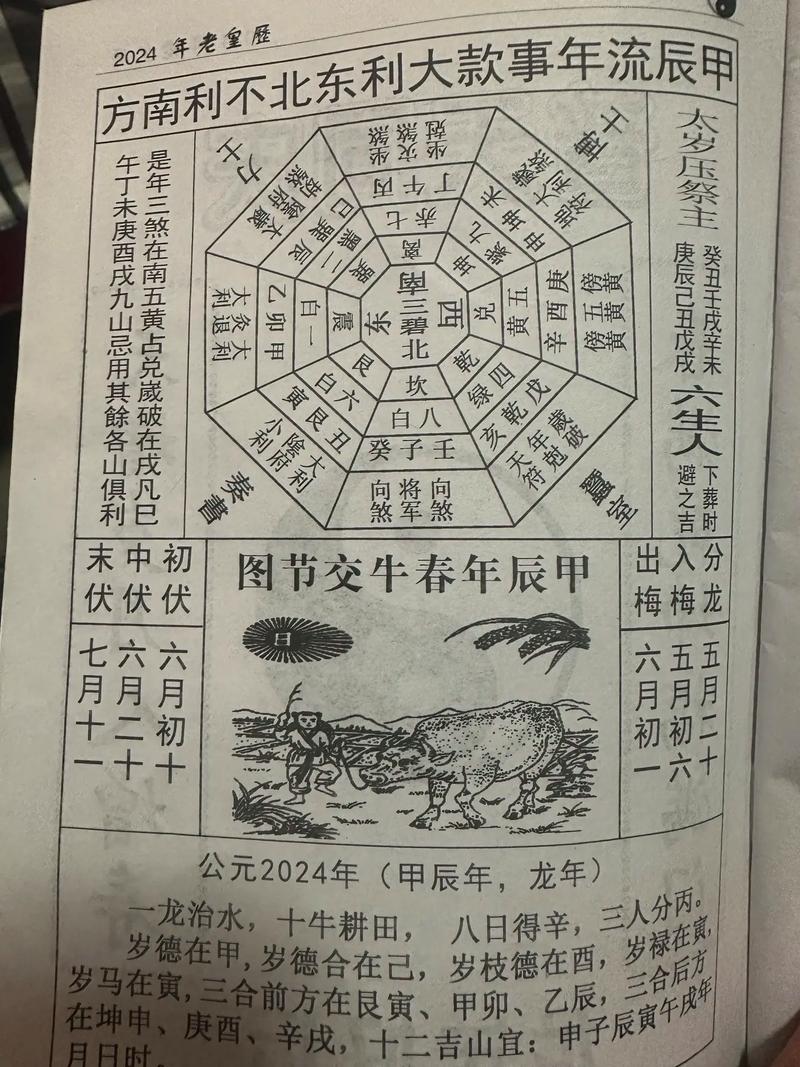 2024 年老皇歷
甲辰流年事款大利东北不利南方
太岁压祭主
癸丑壬戌辛未
庚辰己丑戊戌
六生人
下葬时
避之吉
博士
力士
奏書
蠶室
坐煞 灾煞
丙午丁
七赤
离
地符 大利 歲煞
未坤申
九紫
坤
傍黄 五黄 傍黄
庚酉辛
五黄
兑
歲破 年尅 天符
戌乾亥
四绿
乾
向煞 将军 向煞
壬子癸
八白
坎
大利 陰府 小利
丑艮寅
六白
艮
大利 灸退 大利
甲卯乙
一白
震
太歲 陰府 劫煞
辰巽巳
二黑
巽
南
东 三碧 西
北
是年三煞在南五黄占兑歲破在戌凡巳
午丁未庚酉戌九山忌用其餘各山俱利
分龙
五月二十
入梅
五月初六
出梅
六月初一
甲辰年春牛交节图
日
初伏
六月初十
中伏
六月二十
末伏
七月十一
公元2024年（甲辰年，龙年）
一龙治水，十牛耕田，八日得辛，三人分丙。
岁德在甲，岁德合在己，岁枝德在酉，岁禄在寅，
岁马在寅，三合前方在艮寅、甲卯、乙辰，三合后方
在坤申、庚酉、辛戌，十二吉山宜：申子辰寅午戌年
月日时。